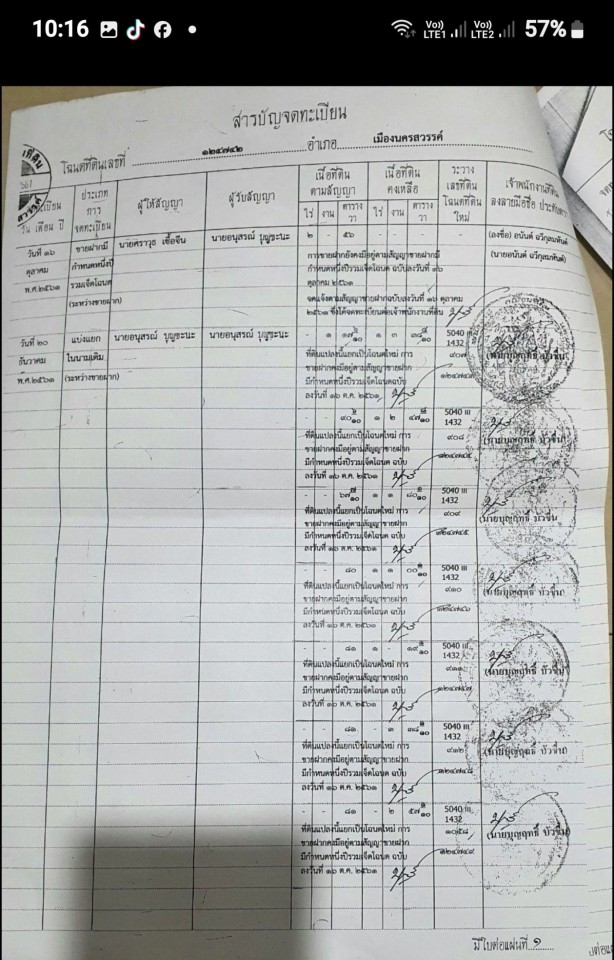 10:16
Vo)) LTE1 Vo)) LTE2 57%
สารบัญจดทะเบียน
โฉนดที่ดินเลขที่ ๑๒๔๗๔๒ อำเภอ เมืองนครสวรรค์
จดทะเบียน วัน เดือน ปี
ประเภทการจดทะเบียน
ผู้ให้สัญญา
ผู้รับสัญญา
เนื้อที่ดินตามสัญญา
ไร่ งาน ตารางวา
เนื้อที่ดินคงเหลือ
ไร่ งาน ตารางวา
ระวาง เลขที่ดิน โฉนดที่ดินใหม่
เจ้าพนักงานที่ดิน ลงลายมือชื่อ ประทับตรา
วันที่ ๑๖ ตุลาคม พ.ศ.๒๕๖๑
ขายฝากมีกำหนดหนึ่งปี รวมเจ็ดโฉนด (ระหว่างขายฝาก)
นายศราวุธ เชื้อจีน
นายอนุสรณ์ บุญชะนะ
๒ - ๕๖
(ลงชื่อ) อนันต์ ถวิกุลมหันต์
(นายอนันต์ ถวิกุลมหันต์)
การขายฝากยังคงมีอยู่ตามสัญญาขายฝากมี
กำหนดหนึ่งปีรวมเจ็ดโฉนด ฉบับลงวันที่ ๑๖
ตุลาคม ๒๕๖๑
จดแจ้งตามสัญญาขายฝากฉบับลงวันที่ ๑๖ ตุลาคม
๒๕๖๑ ซึ่งได้จดทะเบียนต่อเจ้าพนักงานที่ดิน
วันที่ ๒๐ ธันวาคม พ.ศ.๒๕๖๑
แบ่งแยกในนามเดิม (ระหว่างขายฝาก)
นายอนุสรณ์ บุญชะนะ
นายอนุสรณ์ บุญชะนะ
5040 III
1432
๙๐๗
(นายบุญฤทธิ์ บัวชื่น)
ที่ดินแปลงนี้แยกเป็นโฉนดใหม่ การ
ขายฝากคงมีอยู่ตามสัญญาขายฝาก
มีกำหนดหนึ่งปีรวมเจ็ดโฉนดฉบับ
ลงวันที่ ๑๖ ต.ค. ๒๕๖๑
5040 III
1432
๙๐๘
(นายบุญฤทธิ์ บัวชื่น)
ที่ดินแปลงนี้แยกเป็นโฉนดใหม่ การ
ขายฝากคงมีอยู่ตามสัญญาขายฝาก
มีกำหนดหนึ่งปีรวมเจ็ดโฉนด ฉบับ
ลงวันที่ ๑๖ ต.ค. ๒๕๖๑
5040 III
1432
๙๐๙
(นายบุญฤทธิ์ บัวชื่น)
ที่ดินแปลงนี้แยกเป็นโฉนดใหม่ การ
ขายฝากคงมีอยู่ตามสัญญาขายฝาก
มีกำหนดหนึ่งปีรวมเจ็ดโฉนด ฉบับ
ลงวันที่ ๑๖ ต.ค. ๒๕๖๑
๑๒๔๗๔๕
- - ๘๐ ๑ ๑
5040 III
1432
๙๑๐
(นายบุญฤทธิ์ บัวชื่น)
ที่ดินแปลงนี้แยกเป็นโฉนดใหม่ การ
ขายฝากคงมีอยู่ตามสัญญาขายฝาก
มีกำหนดหนึ่งปีรวมเจ็ดโฉนด ฉบับ
ลงวันที่ ๑๖ ต.ค. ๒๕๖๑
๑๒๔๗๔๖
- - ๘๑ ๑ -
5040 III
1432
๙๑๑
(นายบุญฤทธิ์ บัวชื่น)
ที่ดินแปลงนี้แยกเป็นโฉนดใหม่ การ
ขายฝากคงมีอยู่ตามสัญญาขายฝาก
มีกำหนดหนึ่งปีรวมเจ็ดโฉนด ฉบับ
ลงวันที่ ๑๖ ต.ค. ๒๕๖๑
๑๒๔๗๔๗
- - ๘๑ - ๓
5040 III
1432
๙๑๒
(นายบุญฤทธิ์ บัวชื่น)
ที่ดินแปลงนี้แยกเป็นโฉนดใหม่ การ
ขายฝากคงมีอยู่ตามสัญญาขายฝาก
มีกำหนดหนึ่งปีรวมเจ็ดโฉนด ฉบับ
ลงวันที่ ๑๖ ต.ค. ๒๕๖๑
๑๒๔๗๔๘
- - ๘๑ - ๒
5040 III
1432
๑๐๕๘
(นายบุญฤทธิ์ บัวชื่น)
ที่ดินแปลงนี้แยกเป็นโฉนดใหม่ การ
ขายฝากคงมีอยู่ตามสัญญาขายฝาก
มีกำหนดหนึ่งปีรวมเจ็ดโฉนด ฉบับ
ลงวันที่ ๑๖ ต.ค. ๒๕๖๑
๑๒๔๗๔๙
มีใบต่อแผ่นที่ ๑